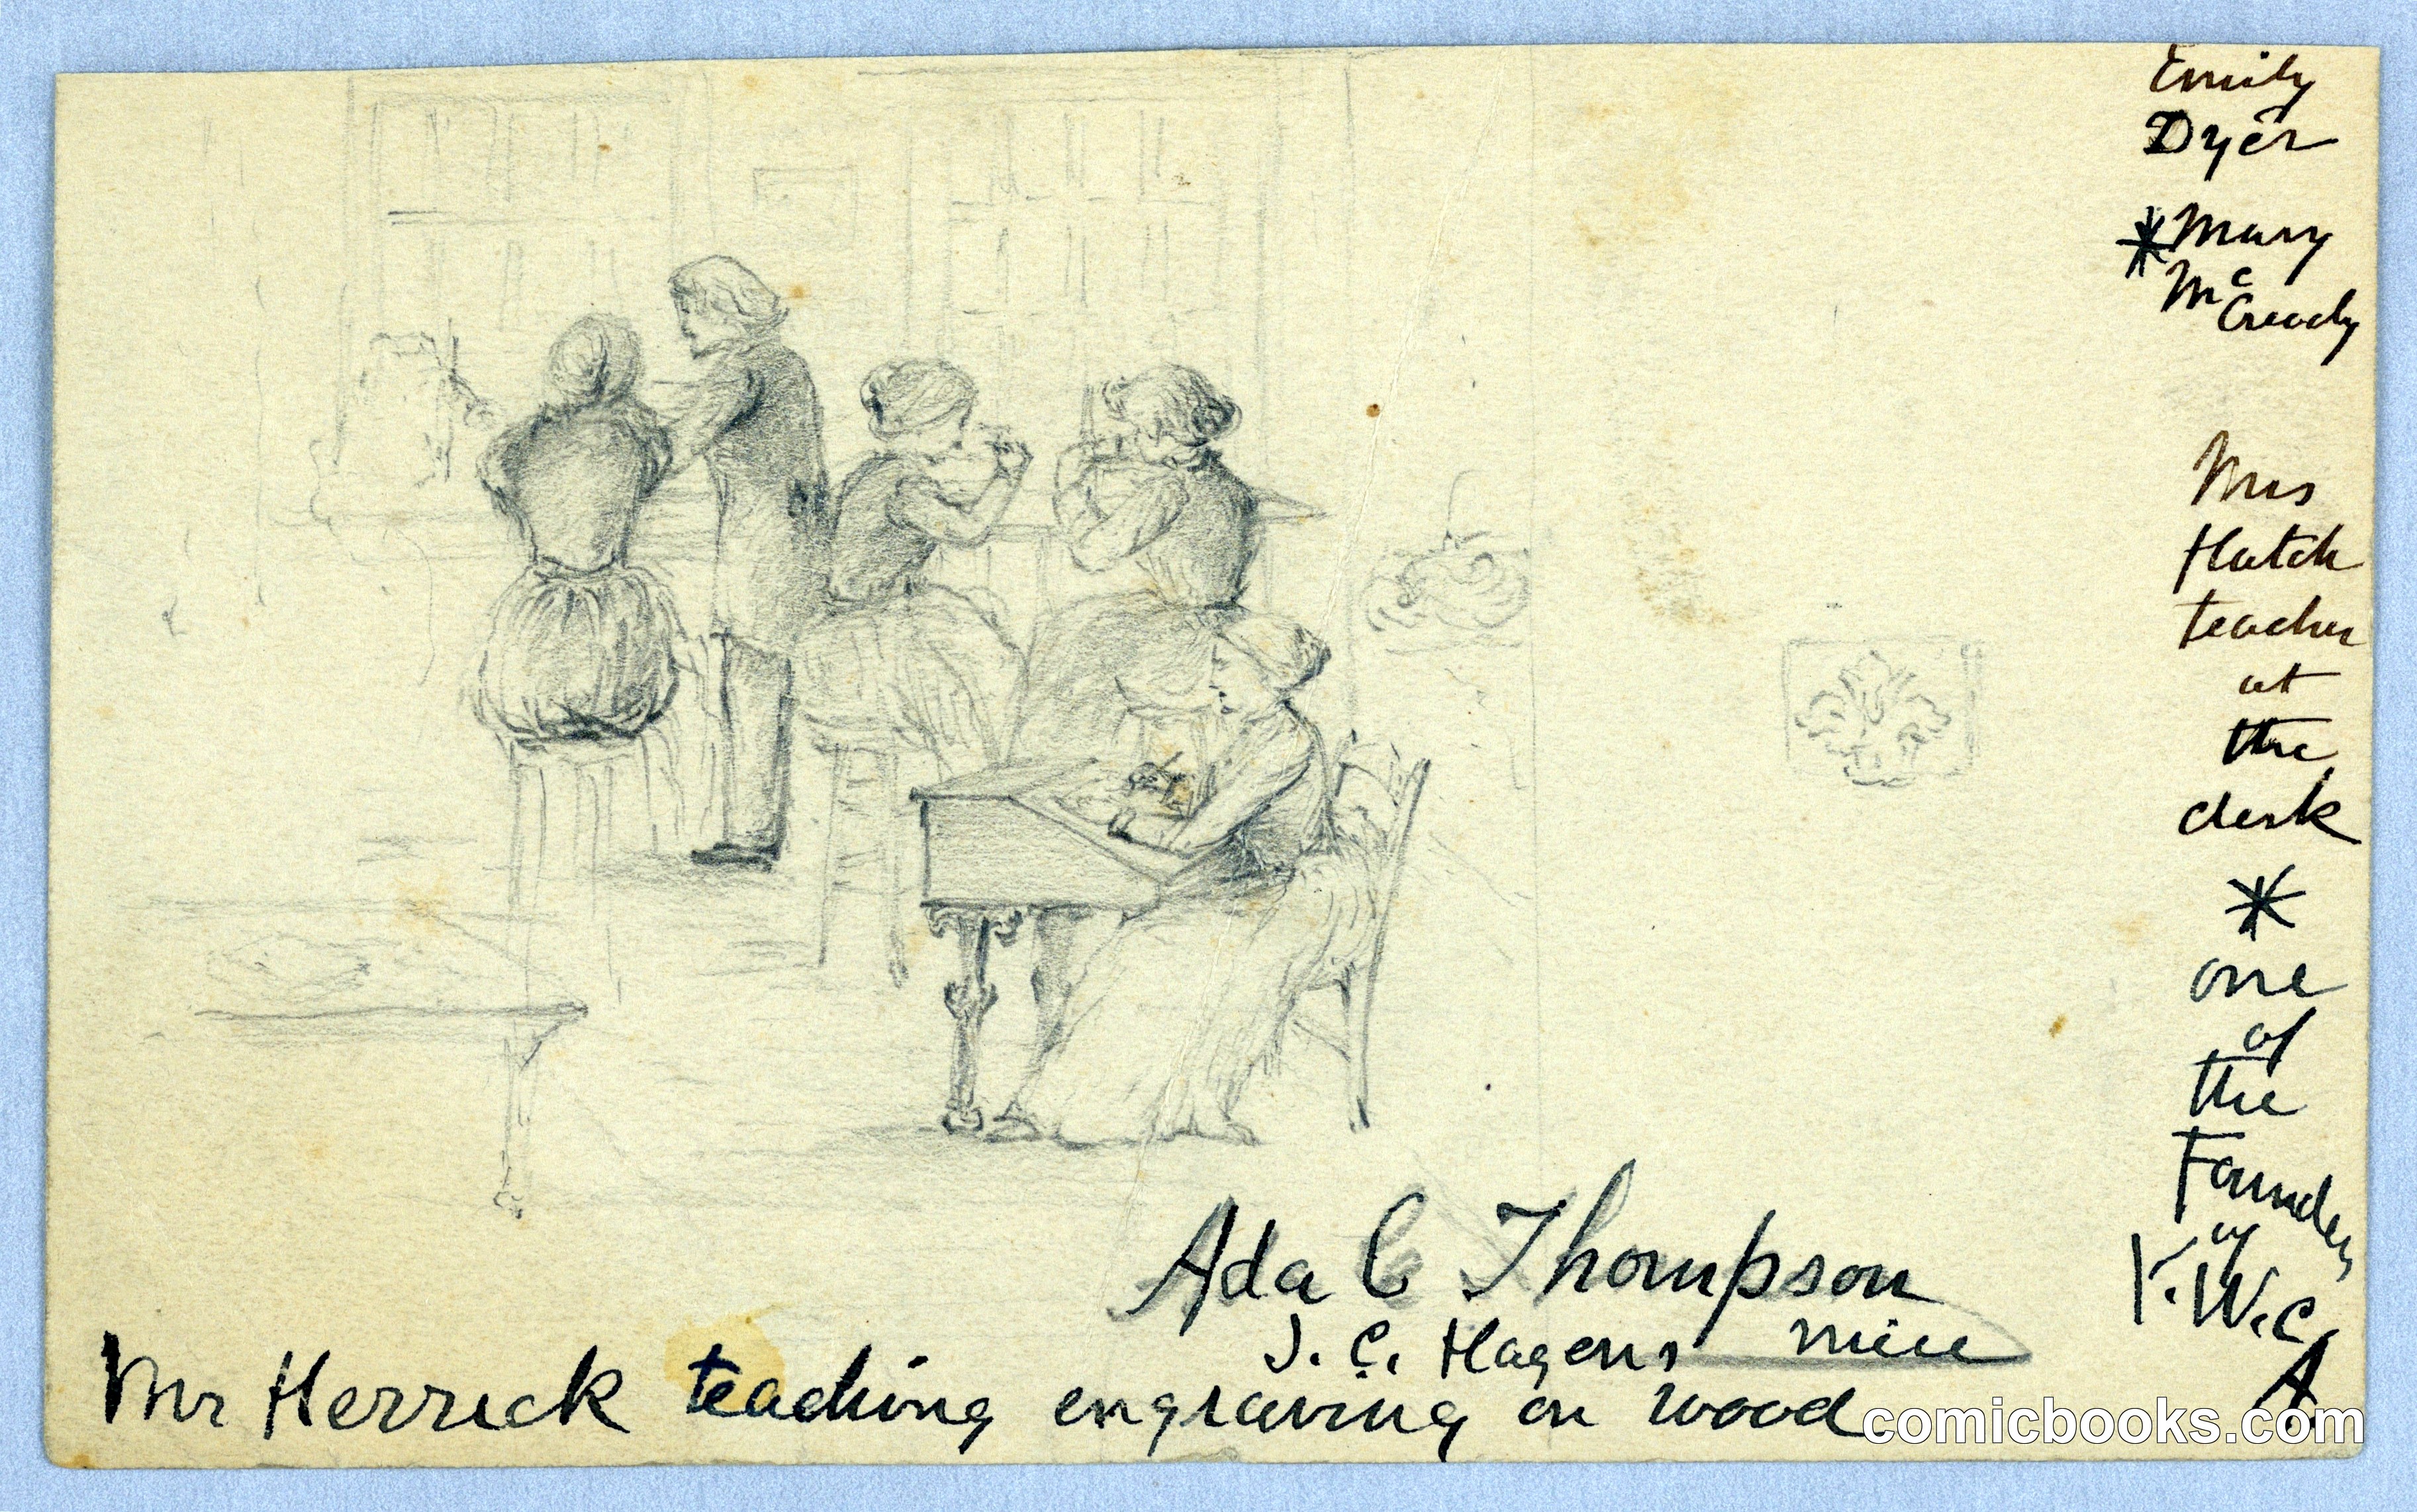 Emily
Dyer
*Mary
Mc
Cready
Mrs
Hatch
teacher
at
the
desk
*
one
of
the
Founders
of
Y.W.C.
A.
Ada C Thompson
J. C. Hagens niece
Mr Herrick teaching engraving on wood
comicbooks.com